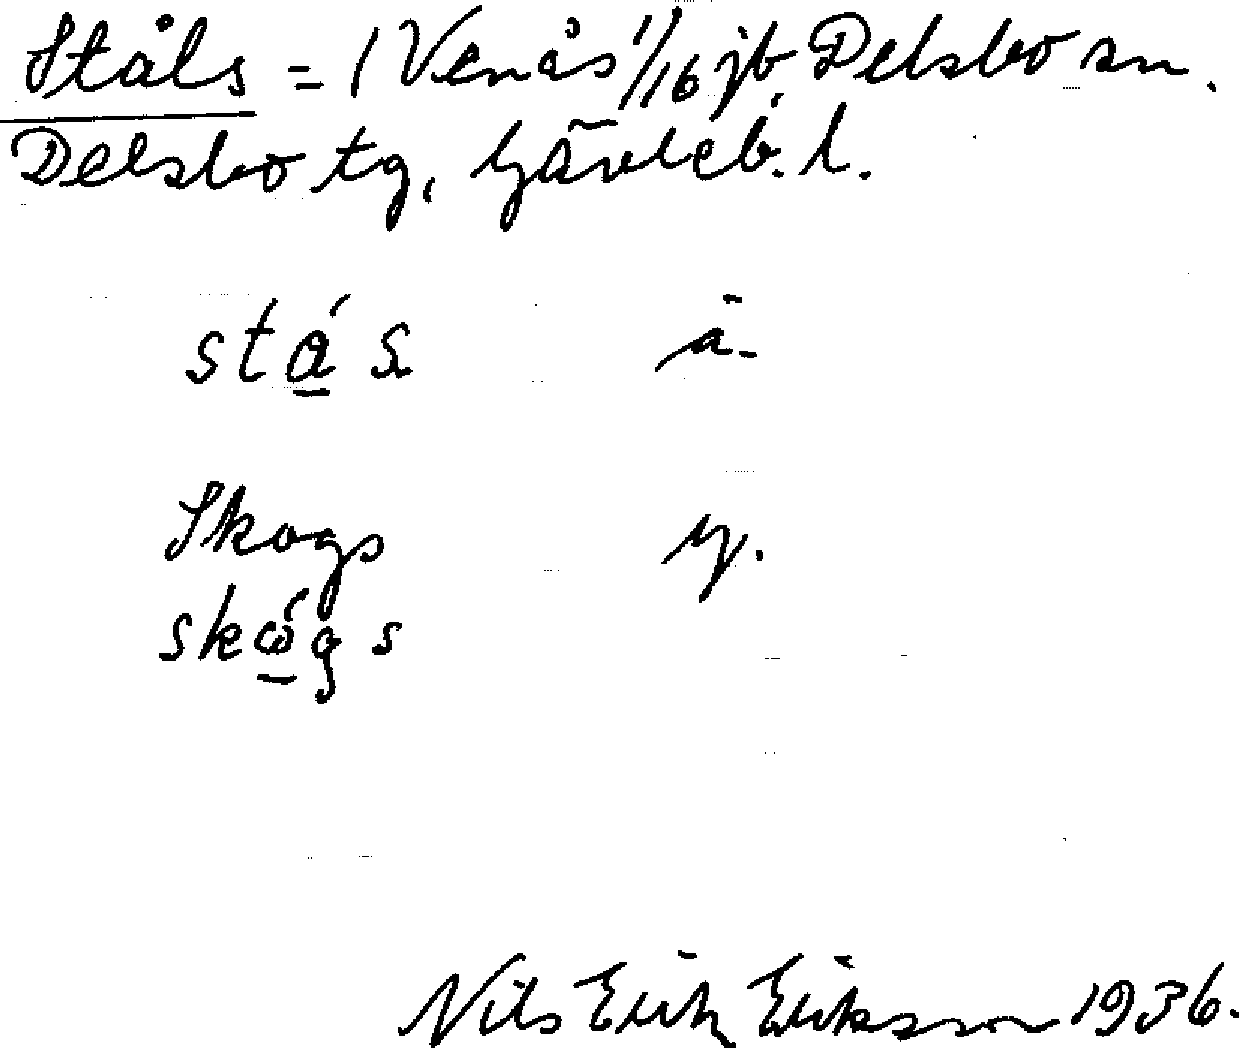 Ståls = 1 Venås 1/16 jb. Delsbo sn.
Delsbo tg, Gävleb. l.
stás ä.
Skogs y.
skógs
Nils Erik Eriksson 1936.